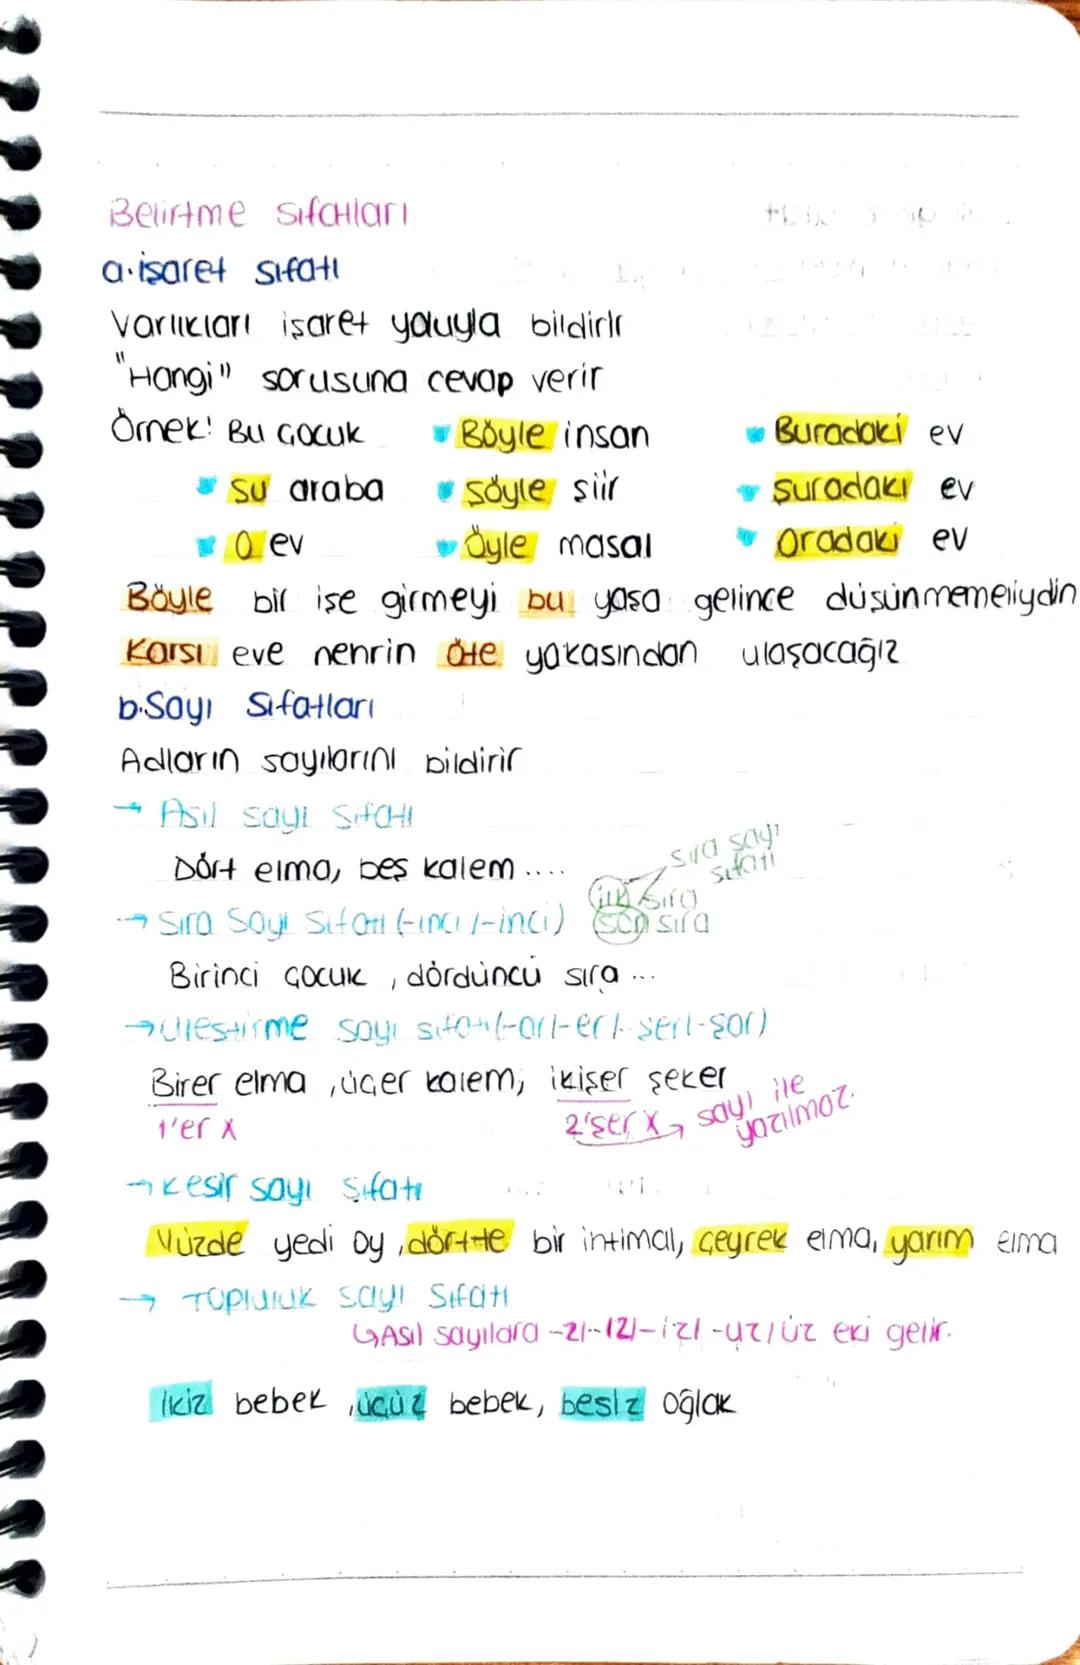 Belirtme sıfatları
a. işaret sıfatı
Varlıkları işaret yoluyla bildirir
"Hangi" sorusuna cevap verir
Örnek! Bu çocuk Böyle insan Buradaki ev
şu araba şöyle şiir şuradaki ev
O ev Öyle masal oradaki ev
Böyle bir işe girmeyi bu yaşa gelince düşünmemeliydin
Karşı eve nehrin öte yakasından ulaşacağız
b. Sayı Sıfatları
Adların sayılarını bildirir
→ Asıl sayı sıfatı
Dört elma, beş kalem ....
sıra sayı
sıfatı
ilk sıra
→ Sıra Sayı sıfatı (-ıncı /-inci) son sıra
Birinci çocuk, dördüncü sıra ...
→ Üleştirme sayı sıfatı (-ar/-er/-şer/-şar)
Birer elma, üçer kalem, ikişer şeker
1'er x 2'şer x → sayı ile
yazılmaz.
→ Kesir sayı sıfatı
Yüzde yedi oy, dörtte bir ihtimal, çeyrek elma, yarım elma
→ Topluluk sayı sıfatı
↳ Asıl sayılara -z/-ız/-iz/-uz/üz eki gelir.
İkiz bebek, üçüz bebek, beşiz oğlak